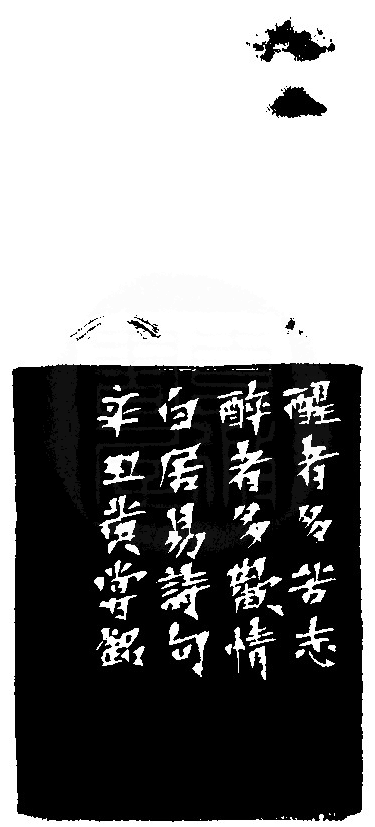 醒者多苦志
醉者多歡情
白居易詩句
辛丑黃嘗銘